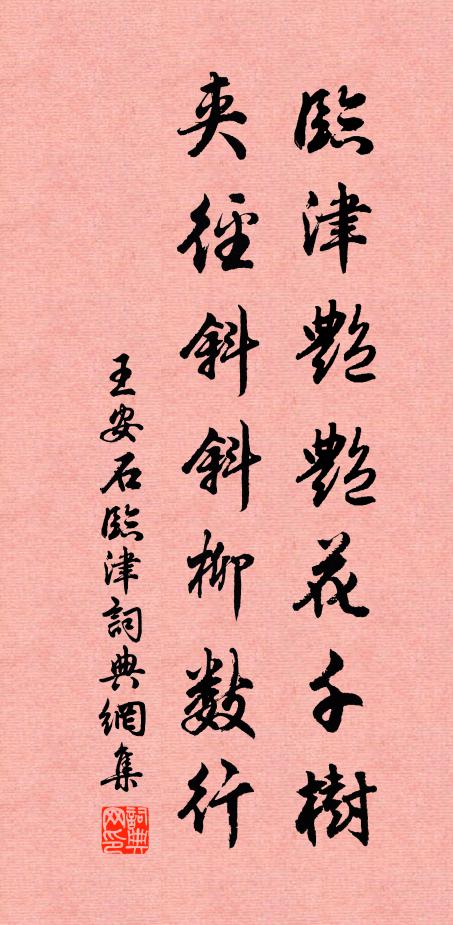 臨津艷艷花千樹
夾徑斜斜柳數行
王安石臨津詞典網集
詞典网印